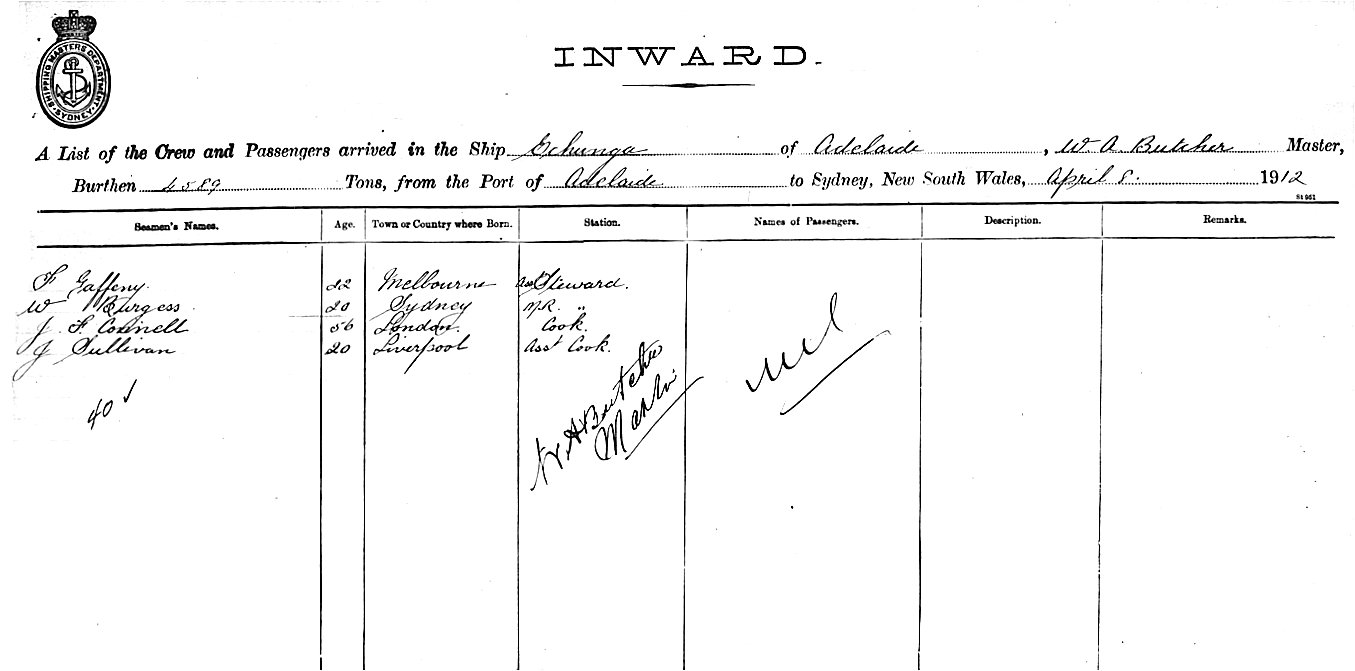 SHIPPING MASTERS DEPARTMENT. SYDNEY.
INWARD.
A List of the Crew and Passengers arrived in the Ship Echunga of Adelaide, W A. Butcher Master,
Burthen 4589 Tons, from the Port of Adelaide to Sydney, New South Wales, April 8. 1912
St 961
Seamen's Names. Age. Town or Country where Born. Station. Names of Passengers. Description. Remarks.
F Gaffeny. 22 Melbourne Asst Steward.
W Burgess 20 Sydney M.R. "
J. F. Connell 56 London. Cook.
J Sullivan 20 Liverpool Asst Cook.
40 ✓
W A Butcher
Master
nil